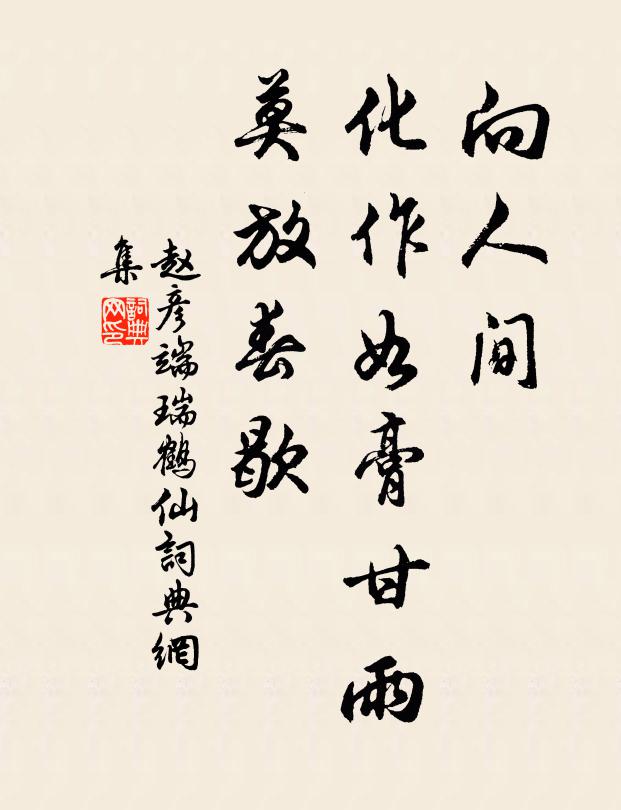 向人间
化作如膏甘雨
莫放春歇
赵彦端瑞鹤仙詞典網
集
詞典
网印